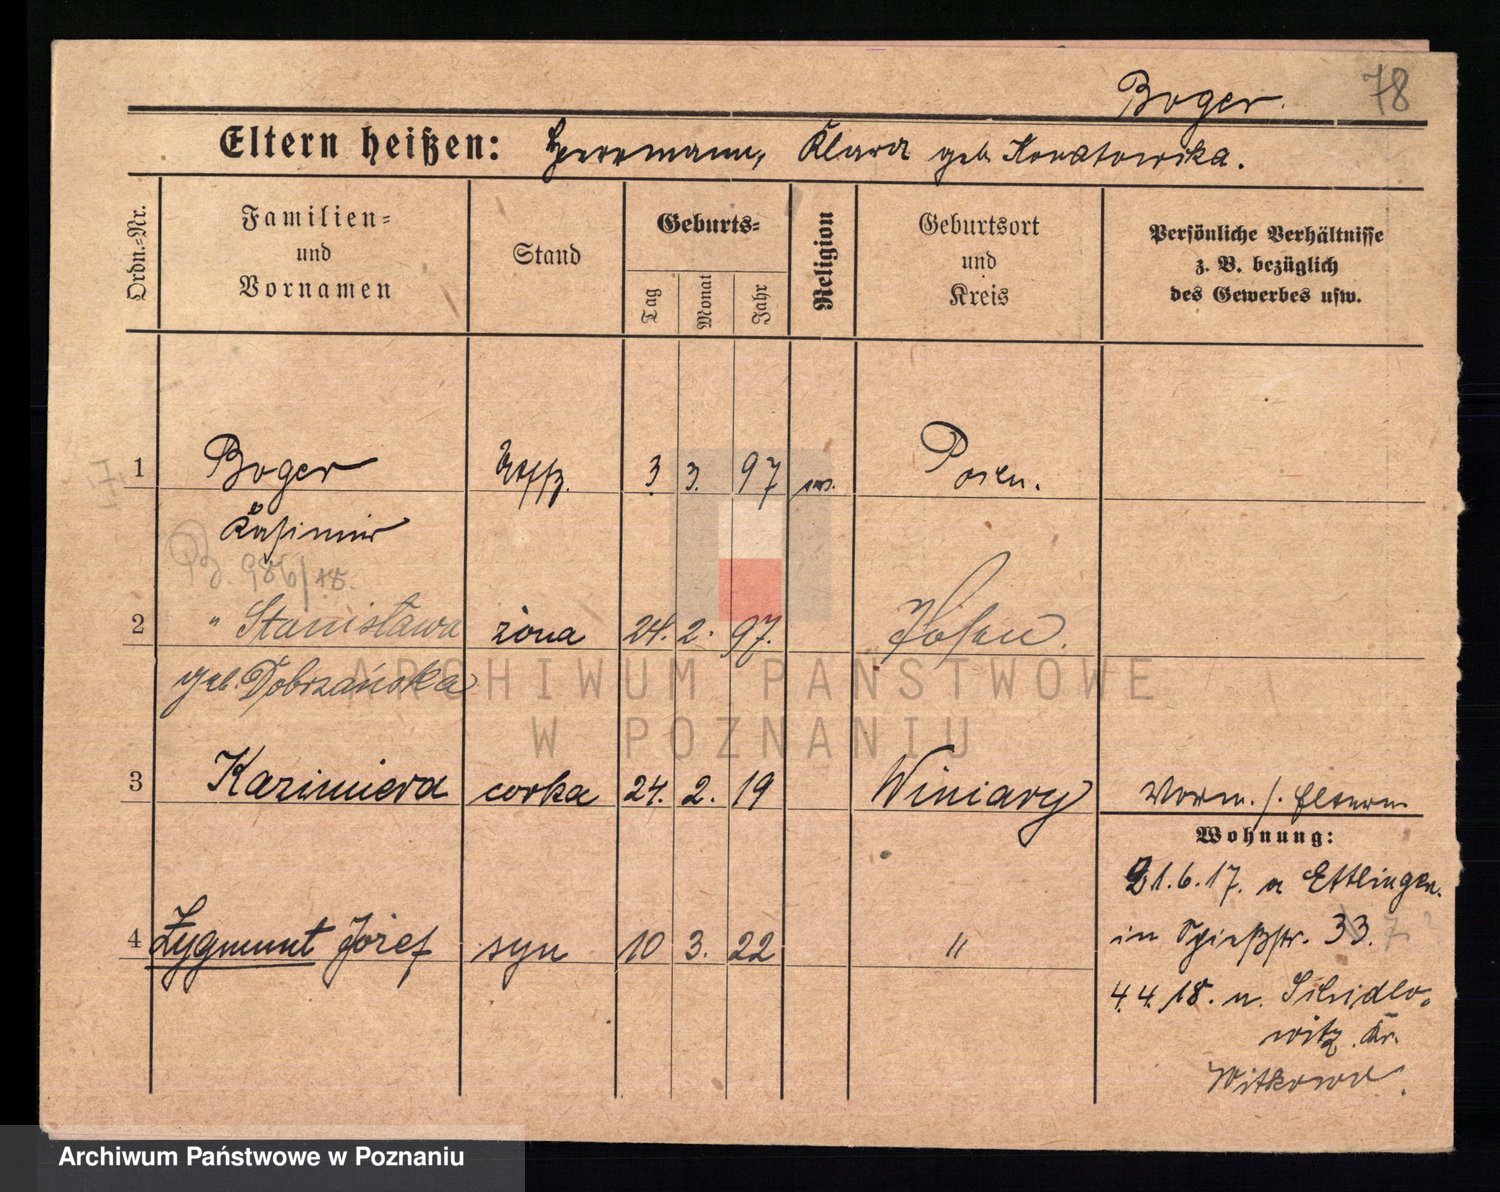 Boger. 78
Eltern heißen: Herrmann, Klara geb. Kwiatowska.
Ordn.=Nr. Familien= und Vornamen Stand Geburts= Tag Monat Jahr Religion Geburtsort und Kreis Persönliche Verhältnisse z. B. bezüglich des Gewerbes usw.
1 Boger Uoffz. 3. 3. 97 Posen.
Kasimir
B. 986/15.
2 " Stanisława żona 24. 2. 97. Posen.
geb. Dobrzańska
3 Kazimiera corka 24. 2. 19 Winiary Vorm. s. Eltern
Wohnung:
21.6.17. n Ettlingen.
4 Zygmunt Józef syn 10 3. 22 "
in Schießstr. 33.
4.4.18. n.
witz Kr.
Witkowo.
ARCHIWUM PAŃSTWOWE
W POZNANIU
Archiwum Państwowe w Poznaniu